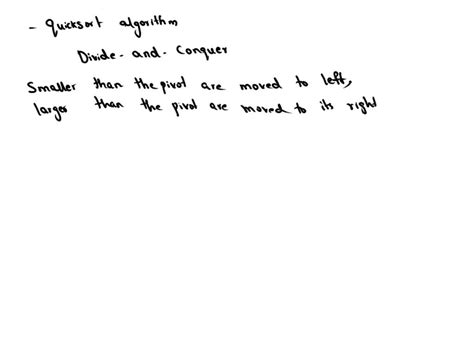 - Quicksort algorithm
Divide-and-Conquer
Smaller than the pivot are moved to left,
larger than the pivot are moved to its right